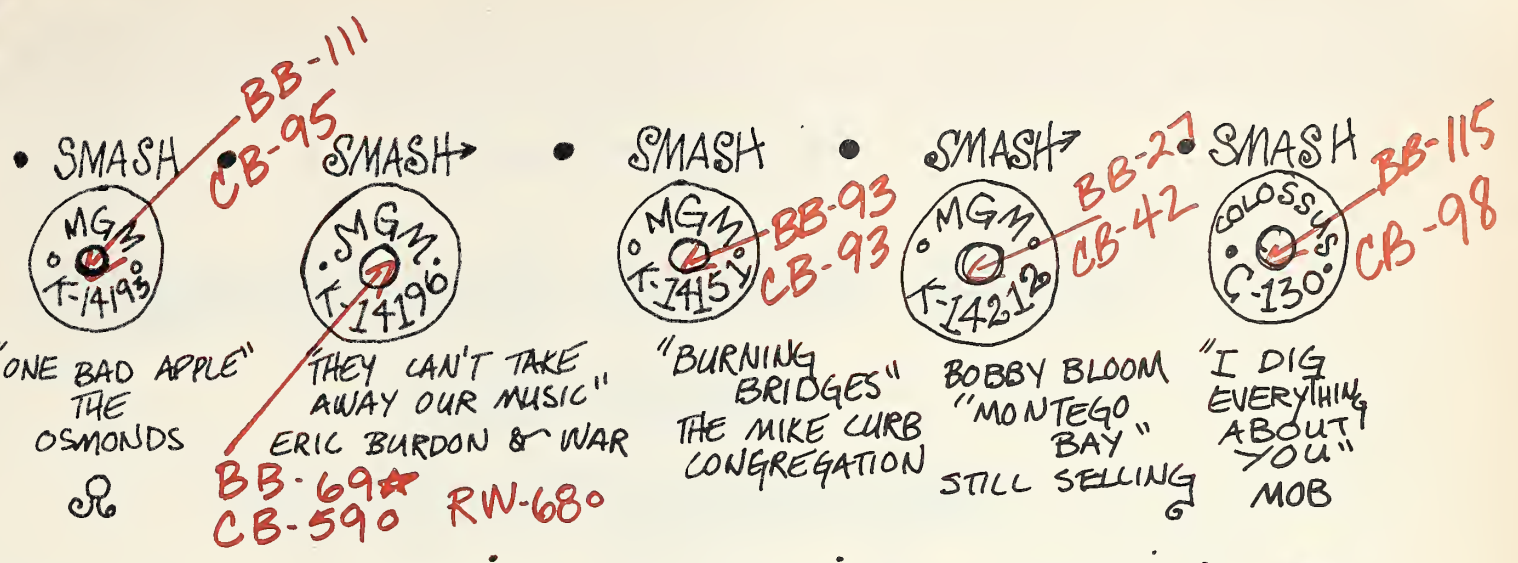 SMASH
MGM
T-14193
BB-111
CB-95
"ONE BAD APPLE"
THE
OSMONDS
SMASH
MGM
T-14196
"THEY CAN'T TAKE
AWAY OUR MUSIC"
ERIC BURDON & WAR
BB-69
CB-59
RW-68
SMASH
MGM
T-14151
BB-93
CB-93
"BURNING
BRIDGES"
THE MIKE CURB
CONGREGATION
SMASH
MGM
T-14212
BB-27
CB-42
BOBBY BLOOM
"MONTEGO
BAY"
STILL SELLING
SMASH
COLOSSUS
C-130
BB-115
CB-98
"I DIG
EVERYTHING
ABOUT
YOU"
MOB